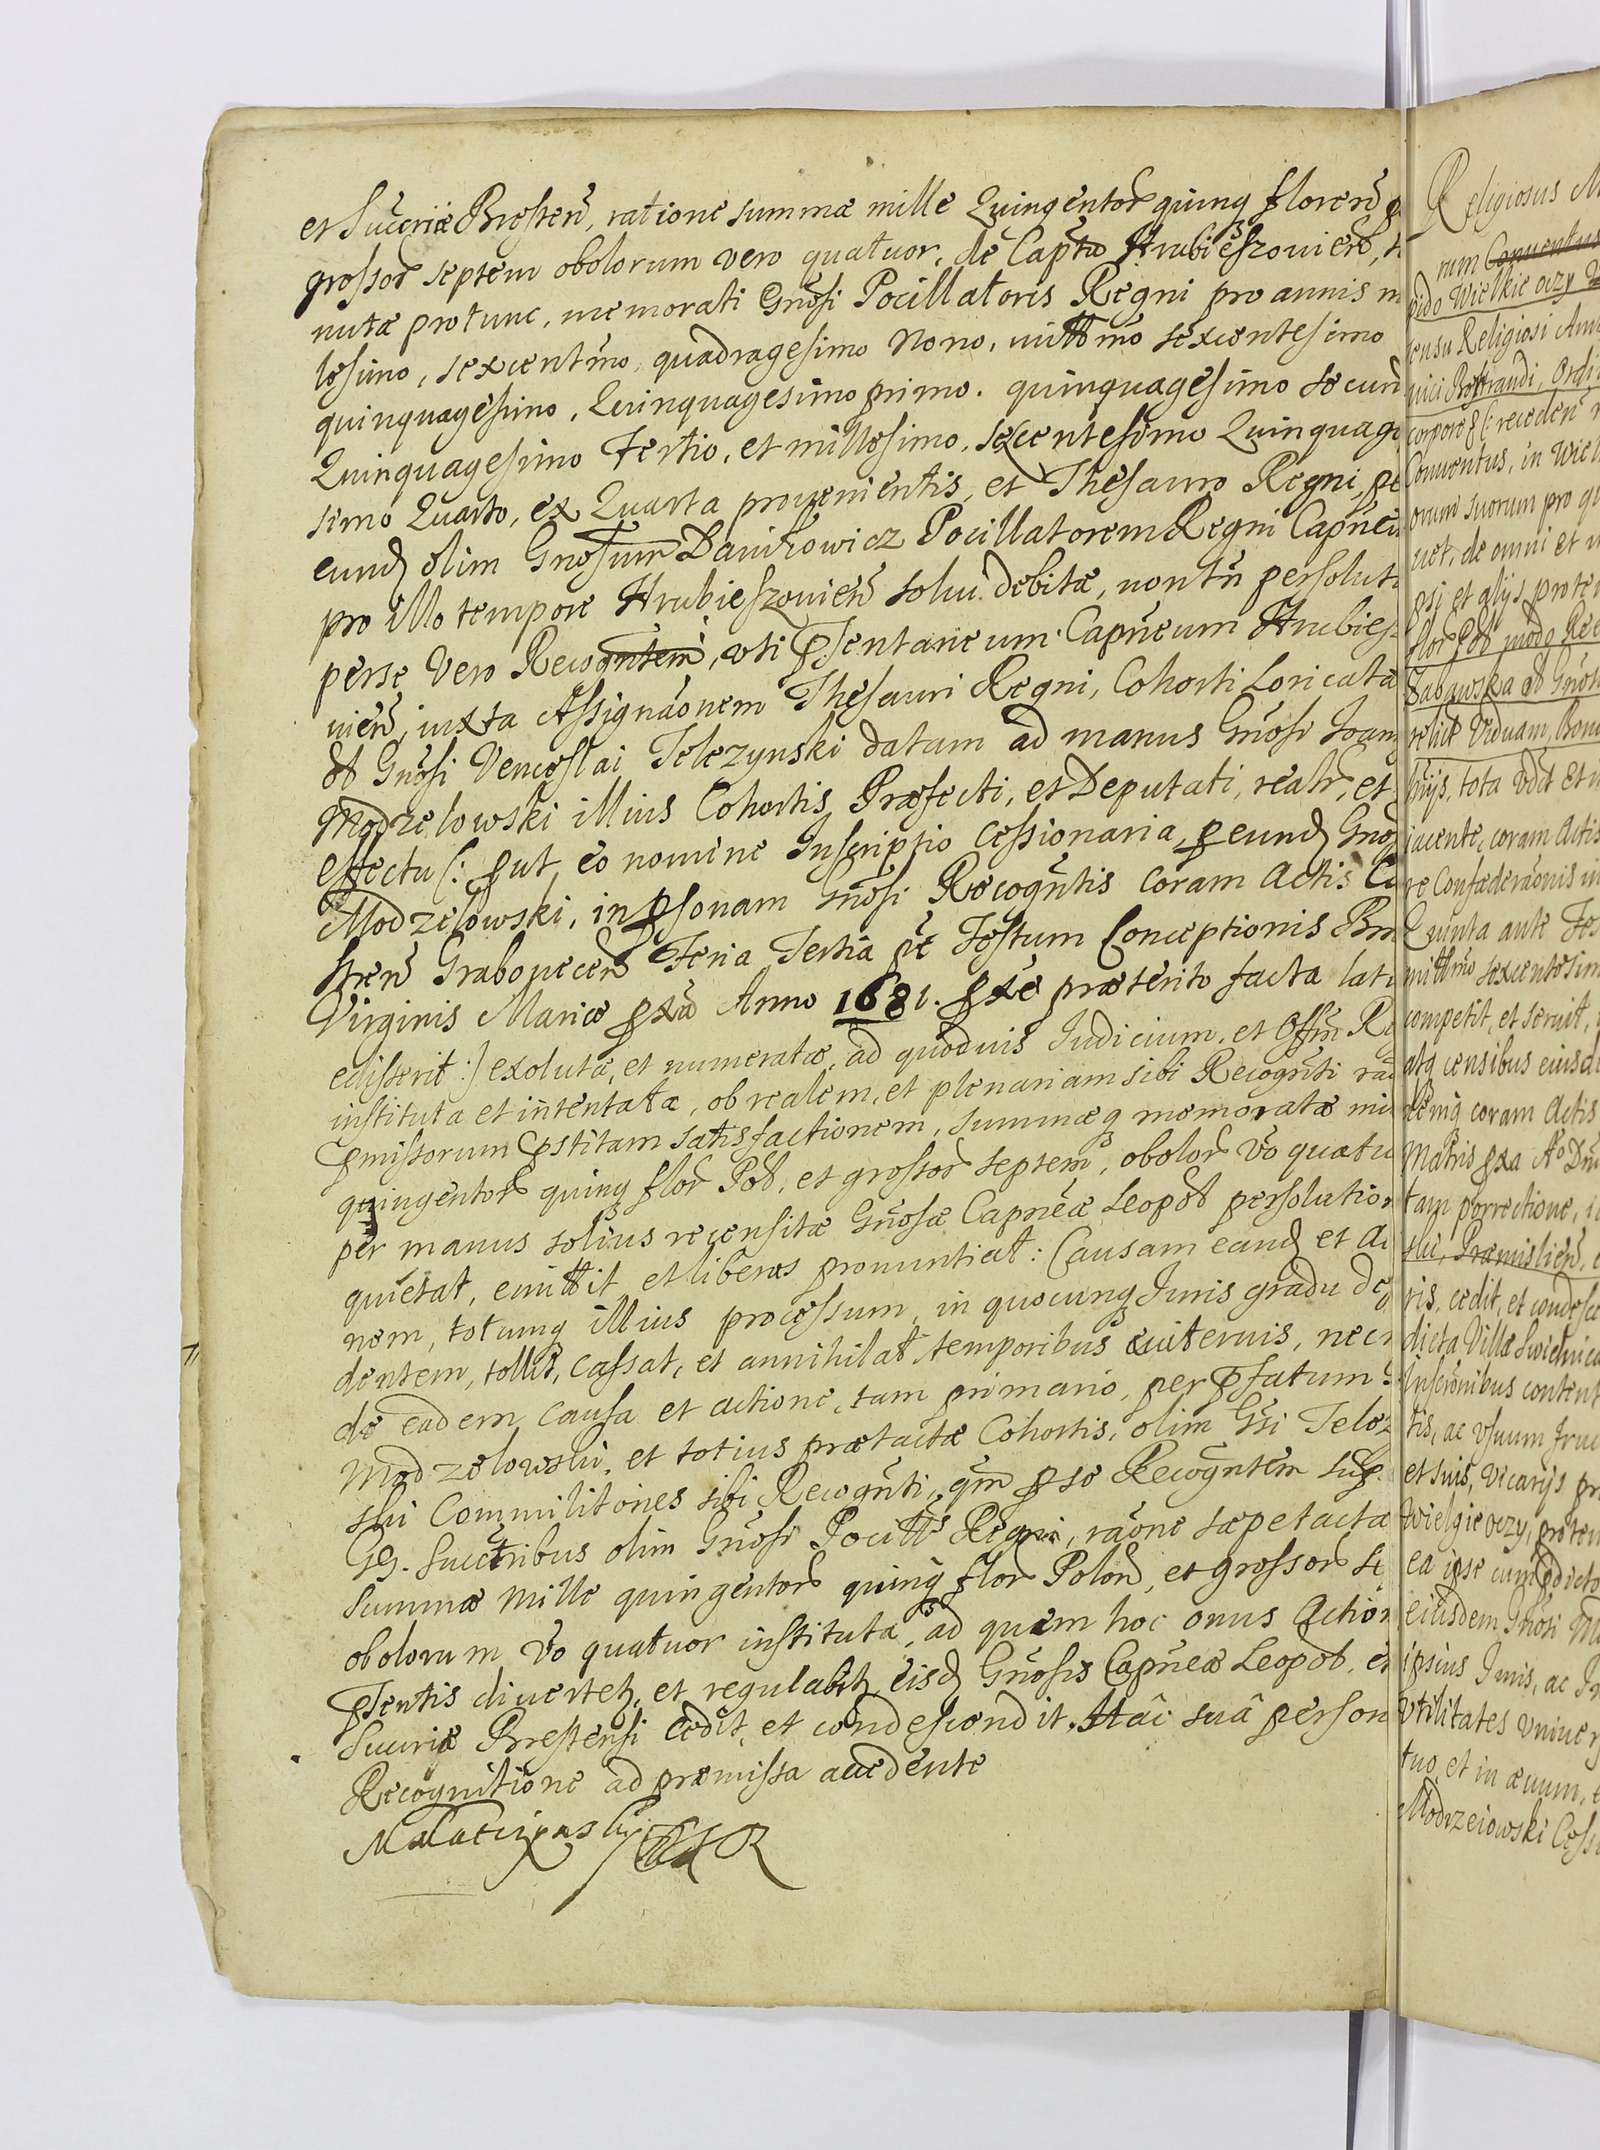 et Succriæ Bresten, ratione summæ mille Quingentor quinq floren
grossor septem obolorum vero quatuor, de Captu Hrubieszovien,
nutæ protunc, memorati Gnosi Pocillatoris Regni pro annis
lesimo, sexcentmo, quadragesimo Nono, millmo sexcentesimo
quinquagesimo, Quinquagesimo primo. quinquagesimo secun
Quinquagesimo Tertio, et millesimo, sexcentesimo Quinquage
simo Quarto, ex Quarta provenientis, et Thesauro Regni, pe
eund olim Gnosum Danilowicz Pocillatorem Regni Capneu
pro illo tempore Hrubieszovien solui debitæ, non tn persolut
perse Vero Recogntem, uti psentaneum Capneum Hrubies
uien, iuxta Assignaonem Thesauri Regni, Cohorti Loricata
olt Gnosi Venceslai Telezynski datam ad manus Gnosi Joan
Modzelowski illius Cohortis Præfecti, et Deputati, realr, et
effectu (: put eo nomine Inscriptio cessionaria, p eund Gnos
Modzelowski, in psonam Gnosi Recogntis coram Actis Ca
stren Grabovecen Feria Tertia pt Festum Conceptionis Bm
Virginis Mariæ pxa Anno 1681. pxe præterito facta lati
edisserit :) exoluta, et numeratæ, ad quoduis Judicium, et Offm R
instituta et intentata, ob realem, et plenariam sibi Recognti
pmissorum pstitam satisfactionem, summæq memoratæ mi
quingentor quinq flor Pol, et grossor septem, obolor vo quatu
per manus solius recensitæ Gnosæ Capneæ Leopol persolution
quietat, emittit et liberos pronuntiat: Causam eand et Ac
nem, totumq illius processum, in quocunq Juris gradu de
dentem, tollit, cassat, et annihilat temporibus æuiternis, nec
de eadem Causa et actione, tam primario, per pfatum
Modzelowski, et totius prætactæ Cohortis, olim Gsi Telez
ski Commilitones sibi Recognti, qm p se Recogntem
GG. Succribus olim Gnosi Pocill Regni, raone sæpetacta
Summæ Mille quingentor quinq flor Polon, et grossor se
obolorum vo quatuor instituta, ad quem hoc onus Action
psentis divertetr, et regulabitr, eisd Gnosis Capneæ Leopol, et
Succriæ Brestensi cedit, et condescendit. Hac sua person
Recognitione ad præmissa accedente
Religiosus M
rum Conventus
pido Wielkie oczy
sensu Religiosi
corpore (: receden
Conventus, in Wiel
orum suorum pro
uet, de omni et
psi et alijs, pro te
flor Pol modo Re
Zabawska olt Gnosi
relict Viduam, Bon
huijs, tota vdt et
iacente, coram Actis
re Confæderaonis in
Quinta ante Fes
millmo sexcentesim
competit, et seruit,
atq censibus eiusd
deniq coram Actis
Matris pxa Ao Dni
tam porrectione,
ski, Præmislien,
ris, cedit, et condesce
dicta Villæ Swidnica
Inscrionibus content
tis, ac vsuum fruc
et suis, vicarijs pr
Wielgie oczy, pro tem
ea ipse cum pdicto
eiusdem Gnosi
ipsius Juris, ac
vtilitates vniuer
tuo, et in æuum,
Modrzeiowski Cess